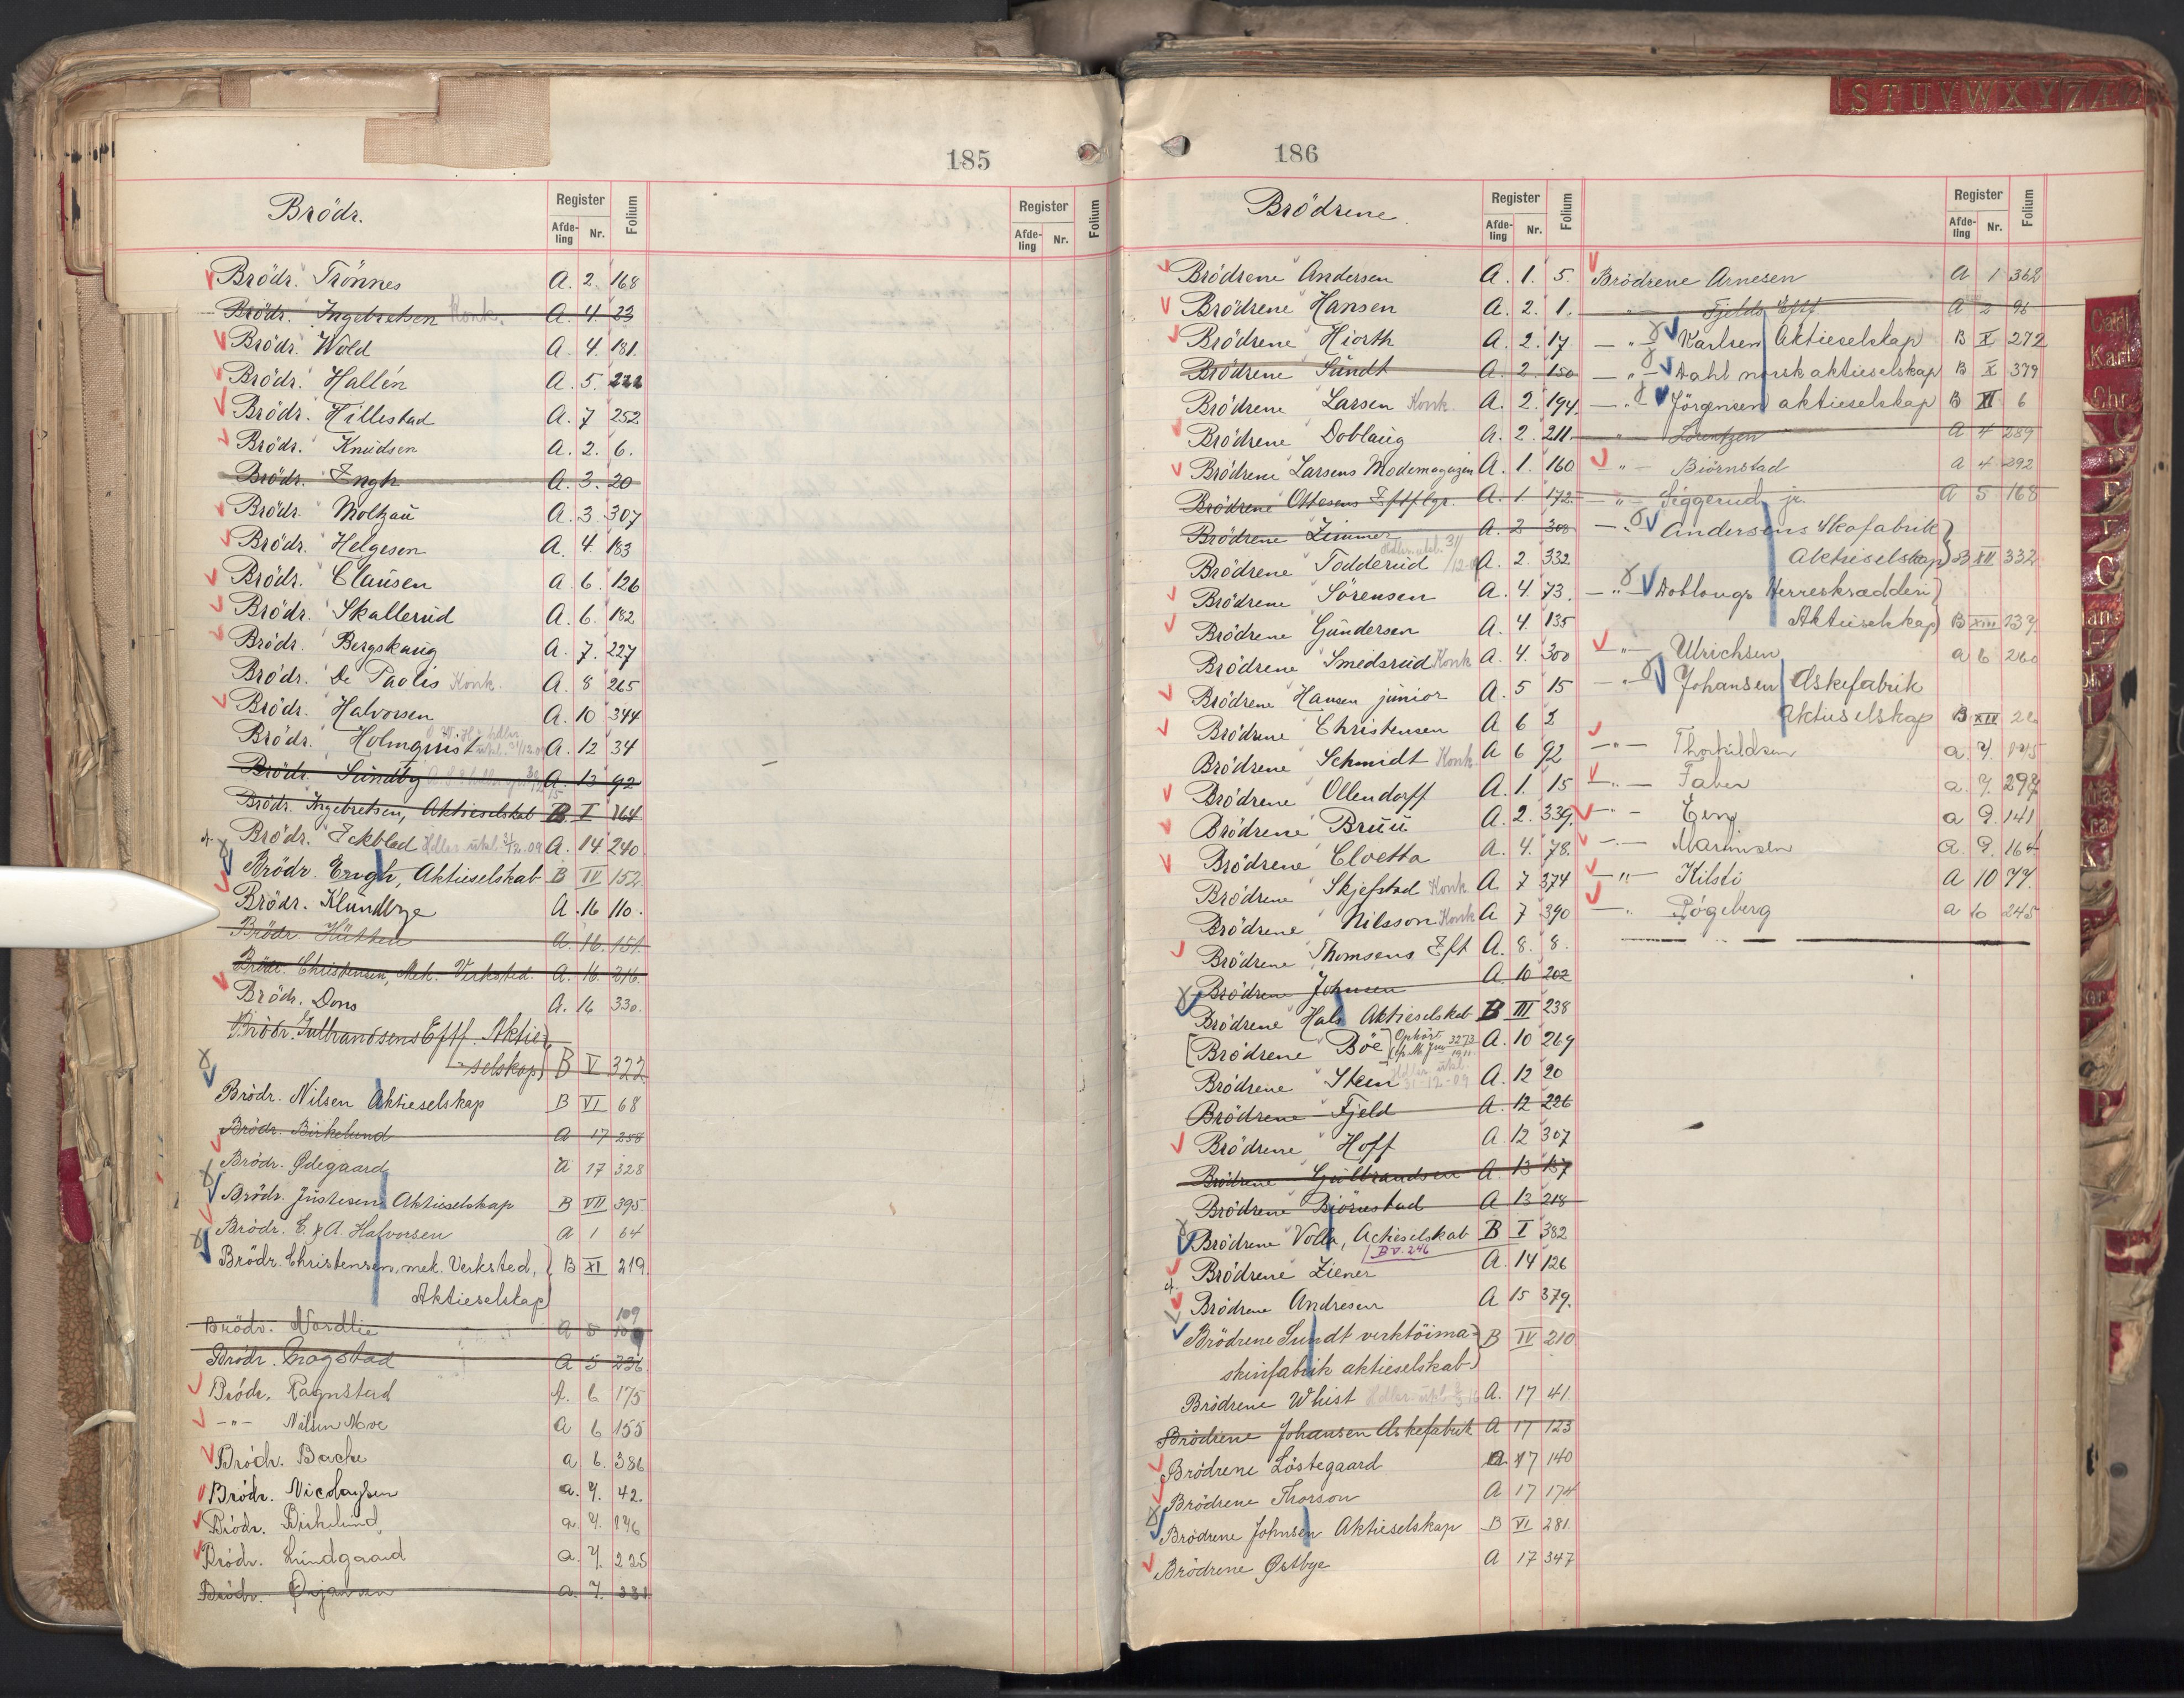 185
Brödr.
Register
Folium
Afde-
ling
Nr.
Register
Folium
Afde-
ling
Nr.
Brödr. Trönnes A. 2. 168
Brödr. Ingebretsen Konk. A. 4. 33
Brödr. Wold A. 4. 181.
Brödr. Hallén A. 5. 222
Brödr. Hillestad A. 7 252
Brödr. Knudsen A. 2. 6.
Brödr. Engh A. 3. 20
Brödr. Moltzau A. 3 307
Brödr. Helgesen A. 4. 183
Brödr. Clausen A. 6. 126
Brödr. Skallerud A. 6. 182
Brödr. Bergskaug A. 7. 227
Brödr. De Paolis Konk. A. 8 265
Brödr. Halvorsen A. 10 344
Brödr. Holmquist A. 12 34
Brödr. Sundby A. 13 92
Brödr. Ingebretsen, Aktieselskab B. I 164
Brödr. Eckblad Hdler utel. 31/12.09 A. 14 240
Brödr. Engh, Aktieselskab B IV 152
Brödr. Klundbye A. 16 110.
Brödr. Hütten A. 16. 151.
Brödr. Christensen, Mek. Verksted. A. 16 216.
Brödr. Dons A. 16 330.
Brödr. Gulbrandsens Eftf. Aktie-
selskap) B V 322
Brödr. Nilsen Aktieselskap B VI 68
Brödr. Birkelund A 17 258
Brödr. Ødegaard A 17 328
Brödr. Justesen Aktieselskap B VII 395.
Brödr. E. & A. Halvorsen A 1 64
Brödr. Christensen, mek. Verksted, B XI 219.
Aktieselskap)
Brödr. Nordlie A 5 109
Brödr. Mogstad A 5 236
Brödr. Ragnstad A. 6 175
-"- Nilsen Moe A 6 155
Brödr. Bache A 6. 386
Brödr. Nicolaysen A. 7. 42.
Brödr. Birkelund A 7. 196
Brödr. Lundgaard A. 7. 225
Brödr. Ørjansen A. 7. 381
186
Brödrene.
Register
Folium
Afde-
ling
Nr.
Brödrene Andersen A. 1. 5.
Brödrene Hansen A. 2. 1.
Brödrene Hiorth A. 2. 17
Brödrene Sundt A. 2. 150
Brödrene Larsen Konk. A. 2. 194.
Brödrene Doblaug A. 2. 211.
Brödrene Larsens Modemagazin A. 1. 160
Brödrene Ottesens Eftflgr. A. 1 172
Brödrene Zimmer A. 2 308
Brödrene Todderud A. 2. 332
Brödrene Sörensen A. 4. 73.
Brödrene Gundersen A. 4. 135
Brödrene Smedsrud Konk A. 4. 300
Brödrene Hansen junior A. 5 15
Brödrene Christensen A 6 2
Brödrene Schmidt Konk. A 6 92
Brödrene Ollendorff A. 1. 15
Brödrene Bruu A. 2. 339.
Brödrene Cloetta A. 4. 78.
Brödrene Skjefstad Konk. A. 7 374
Brödrene Nilsson Konk A 7 390
Brödrene Thomsens Eft A. 8. 8.
Brödrene Johnsen A. 10 202
Brödrene Hals Aktieselskab B III 238
[Brödrene Böe] Ophört A. 10 269
Brödrene Steen Hdler utel. 31-12-09 A. 12 20
Brödrene Fjeld A. 12 226
Brödrene Hoff A. 12 307
Brödrene Gulbrandsen A. 13 157
Brödrene Björnstad A 13 218
Brödrene Volla, Actieselskab B I 382
B V. 246
Brödrene Ziener A. 14 126
Brödrene Andresen A 15 379.
Brödrene Sundt verktöima- B IV 210
skinfabrik aktieselskab.)
Brödrene Whist A. 17 41.
Brödrene Johansen Æskefabrik A 17 123
Brödrene Löstegaard A. 17 140
Brödrene Thorson A 17 174
Brödrene Johnsen Aktieselskap B VI 281.
Brödrene Østbye A 17 347
Register
Folium
Afde-
ling
Nr.
Brödrene Arnesen A 1 362
-"- Fjelds Eftf A 2 96
-"- Karlsen Aktieselskap B X 272
-"- Dahl norsk aktieselskap B X 379
-"- Jörgensen aktieselskap B XI 6
-"- Lorentzen A 4 289
-"- Björnstad A 4 292
-"- Siggerud jr. A 5 168
-"- Andersens Skofabrik
Aktieselskap) B XII 332
-"- Doblougs Herreskrædderi)
Aktieselskap) B XIII 239.
-"- Ulrichsen A 6 260
-"- Johansen Æskefabrik
Aktieselskap B XIV 26
-"- Thorkildsen A. 7. 145
-"- Faber A. 7. 297
-"- Eeng A 9. 141
-"- Martinsen A. 9. 164
-"- Kilstö A 10 77.
-"- Rögeberg A 10 245
S T U V W X Y Z Æ